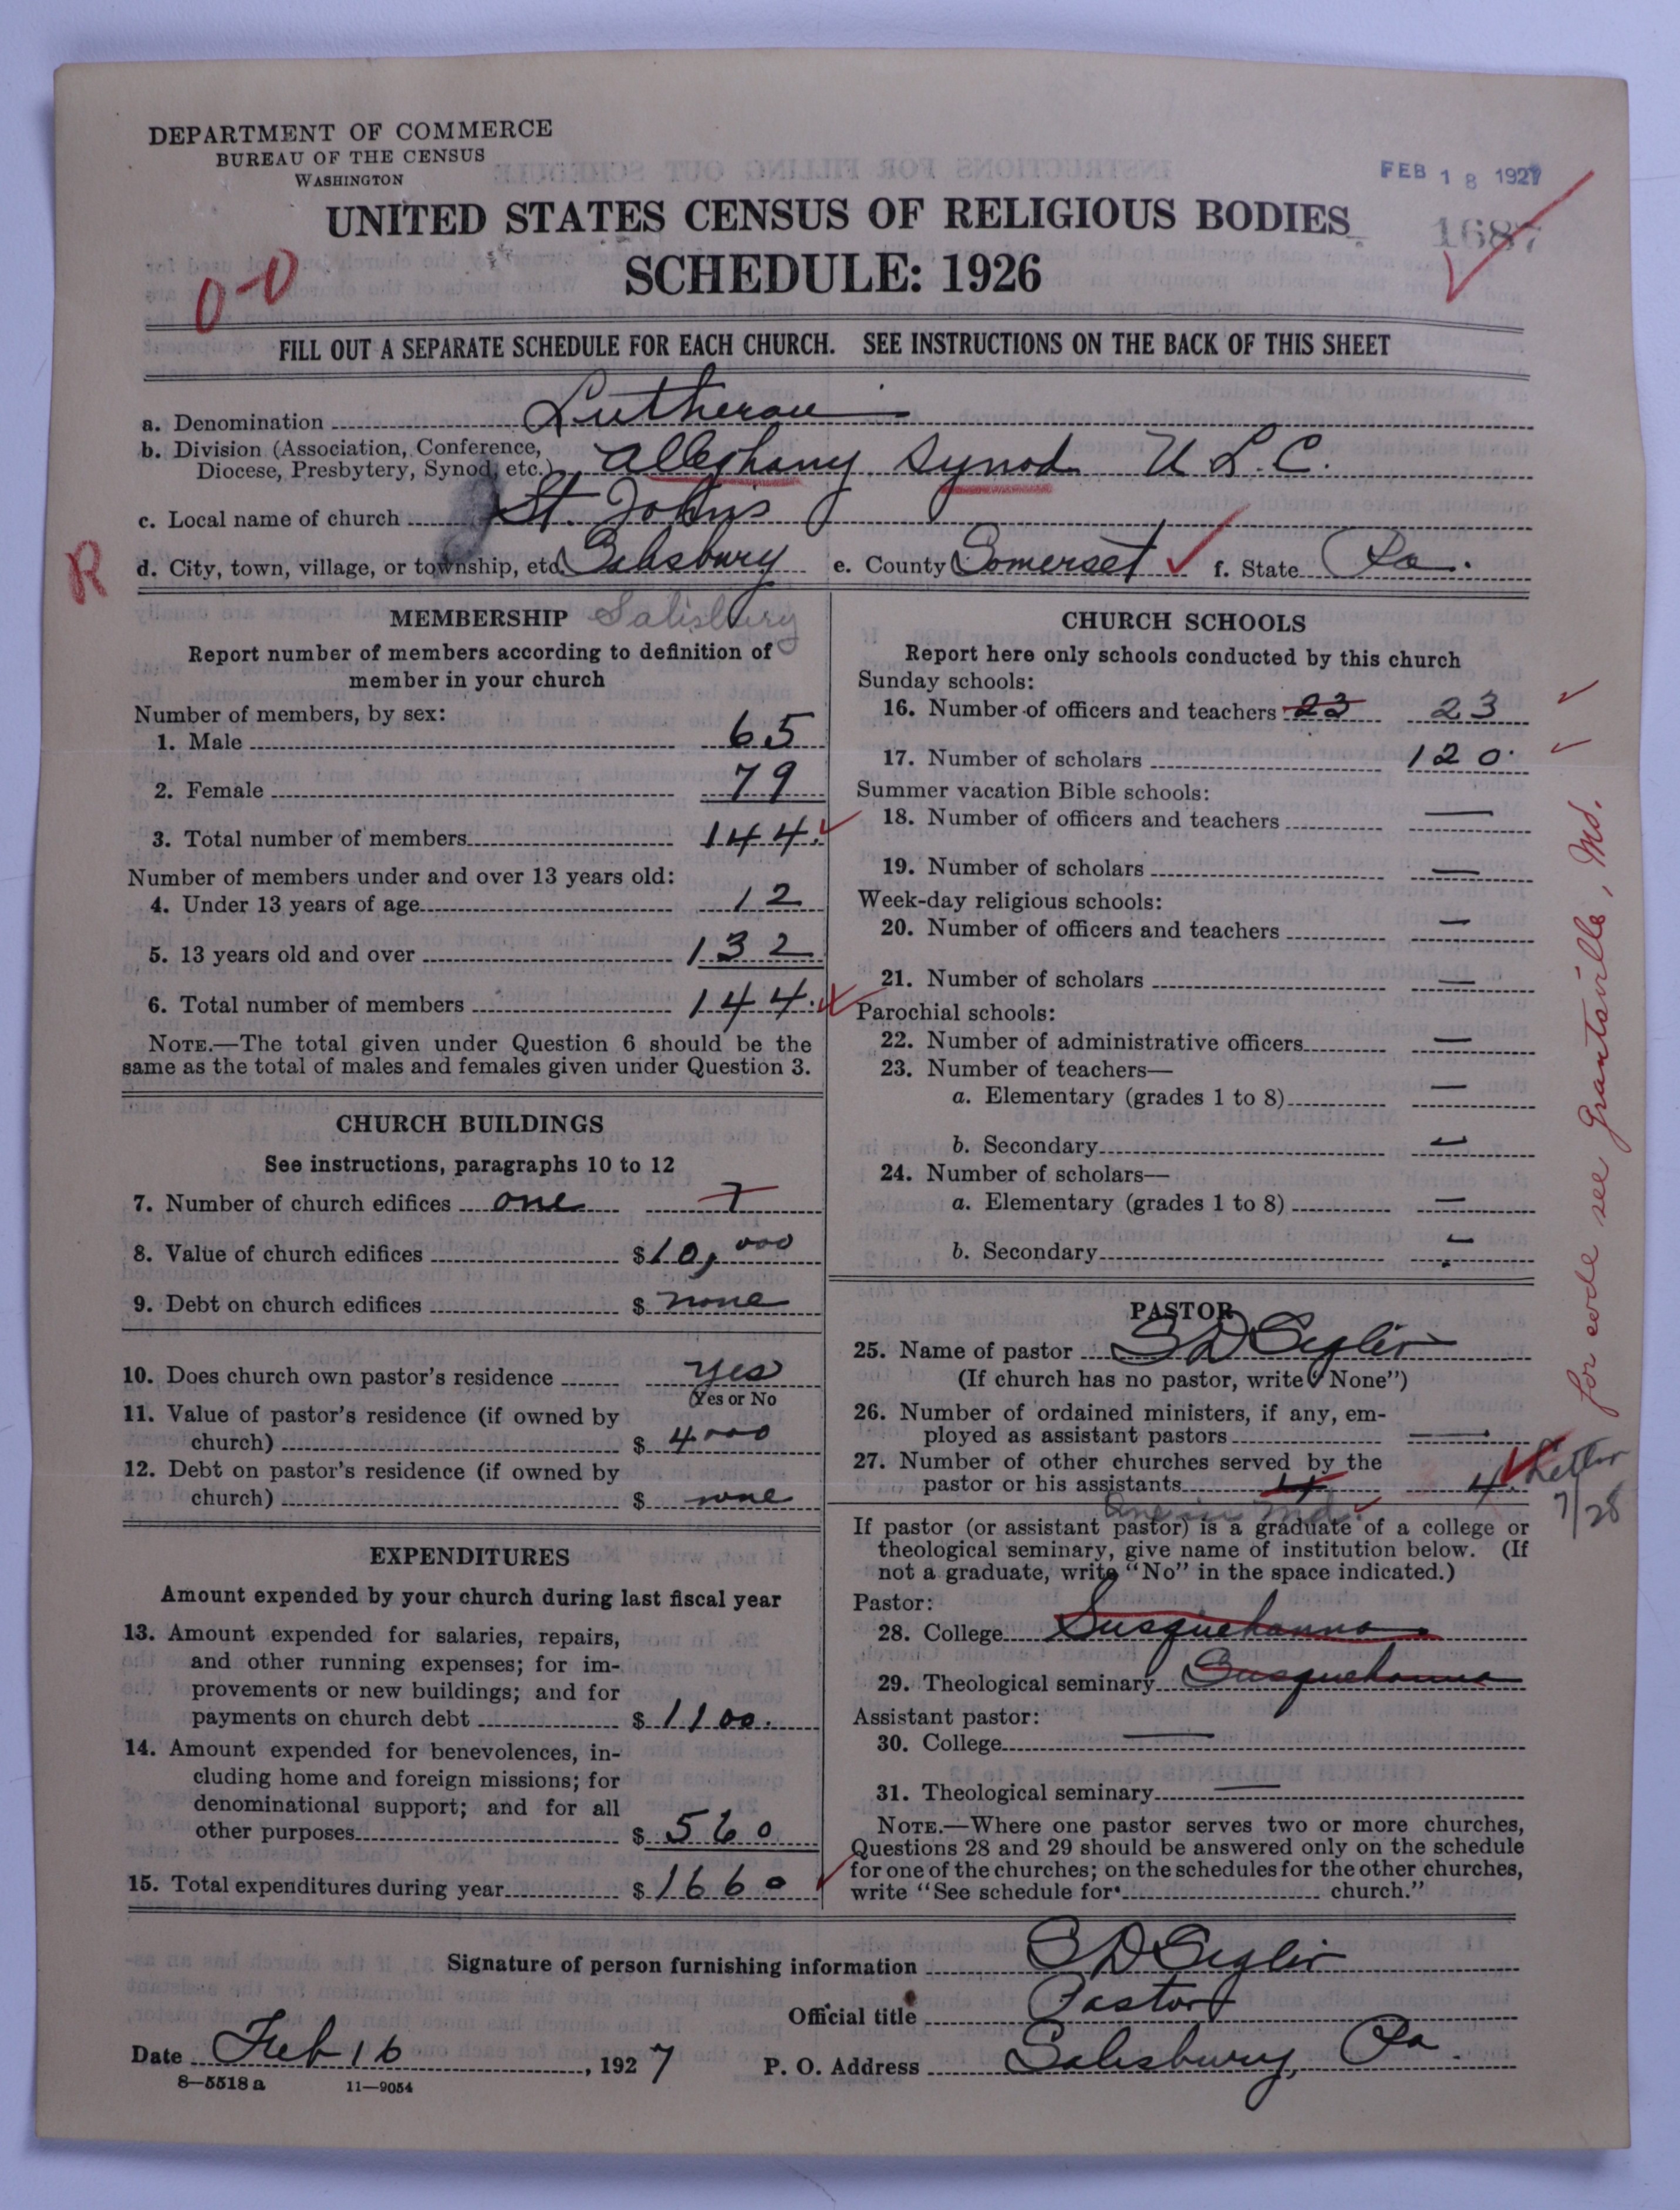 DEPARTMENT OF COMMERCE
BUREAU OF THE CENSUS
WASHINGTON
FEB 18 1927
1687
UNITED STATES CENSUS OF RELIGIOUS BODIES
SCHEDULE: 1926
0-0
FILL OUT A SEPARATE SCHEDULE FOR EACH CHURCH. SEE INSTRUCTIONS ON THE BACK OF THIS SHEET
a. Denomination Lutheran
b. Division (Association, Conference,
Diocese, Presbytery, Synod, etc.) Alleghany Synod U L.C.
c. Local name of church St. John's
R
d. City, town, village, or township, etc. Salisbury e. County Somerset f. State Pa.
MEMBERSHIP Salisbury
Report number of members according to definition of
member in your church
Number of members, by sex:
1. Male 65
2. Female 79
3. Total number of members 144.
Number of members under and over 13 years old:
4. Under 13 years of age 12
5. 13 years old and over 132
6. Total number of members 144.
NOTE.—The total given under Question 6 should be the
same as the total of males and females given under Question 3.
CHURCH BUILDINGS
See instructions, paragraphs 10 to 12
7. Number of church edifices one
8. Value of church edifices $10,000
9. Debt on church edifices $ none
10. Does church own pastor's residence yes
(Yes or No
11. Value of pastor's residence (if owned by
church) $ 4000
12. Debt on pastor's residence (if owned by
church) $ none
EXPENDITURES
Amount expended by your church during last fiscal year
13. Amount expended for salaries, repairs,
and other running expenses; for im-
provements or new buildings; and for
payments on church debt $ 1100.
14. Amount expended for benevolences, in-
cluding home and foreign missions; for
denominational support; and for all
other purposes $ 560
15. Total expenditures during year $ 1660
CHURCH SCHOOLS
Report here only schools conducted by this church
Sunday schools:
16. Number of officers and teachers 23 23
17. Number of scholars 120.
Summer vacation Bible schools:
18. Number of officers and teachers —
19. Number of scholars —
Week-day religious schools:
20. Number of officers and teachers —
21. Number of scholars —
Parochial schools:
22. Number of administrative officers —
23. Number of teachers—
a. Elementary (grades 1 to 8) —
b. Secondary —
24. Number of scholars—
a. Elementary (grades 1 to 8) —
b. Secondary —
PASTOR
25. Name of pastor S D Sigler
(If church has no pastor, write "None")
26. Number of ordained ministers, if any, em-
ployed as assistant pastors —
27. Number of other churches served by the
pastor or his assistants 4 4. Letter
7/28
One in Md.
If pastor (or assistant pastor) is a graduate of a college or
theological seminary, give name of institution below. (If
not a graduate, write "No" in the space indicated.)
Pastor:
28. College Susquehanna
29. Theological seminary Susquehanna
Assistant pastor:
30. College —
31. Theological seminary —
NOTE.—Where one pastor serves two or more churches,
Questions 28 and 29 should be answered only on the schedule
for one of the churches; on the schedules for the other churches,
write "See schedule for church."
for code see Grantsville, Md.
Signature of person furnishing information S D Sigler
Official title Pastor
Date Feb 16, 1927 P. O. Address Salisbury, Pa.
8—5518 a 11—9054